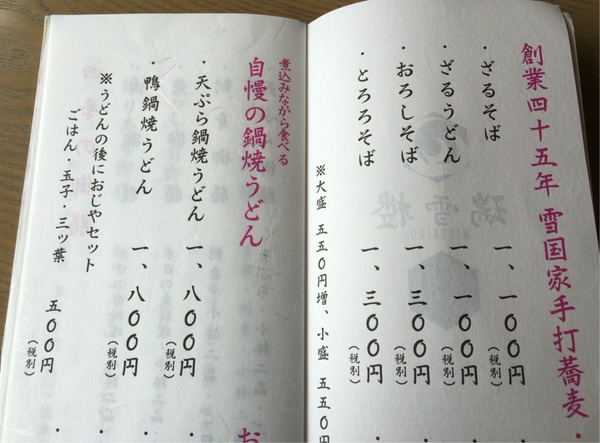 創業四十五年 雪国家手打蕎麦
・ざるそば 一、一〇〇円(税別)
・ざるうどん 一、一〇〇円(税別)
・おろしそば 一、三〇〇円(税別)
・とろろそば 一、三〇〇円(税別)
※大盛 五五〇円増、小盛 五五〇円
煮込みながら食べる
自慢の鍋焼うどん
・天ぷら鍋焼うどん 一、八〇〇円(税別)
・鴨鍋焼うどん 一、八〇〇円(税別)
※うどんの後におじやセット
ごはん・玉子・三ツ葉 五〇〇円(税別)